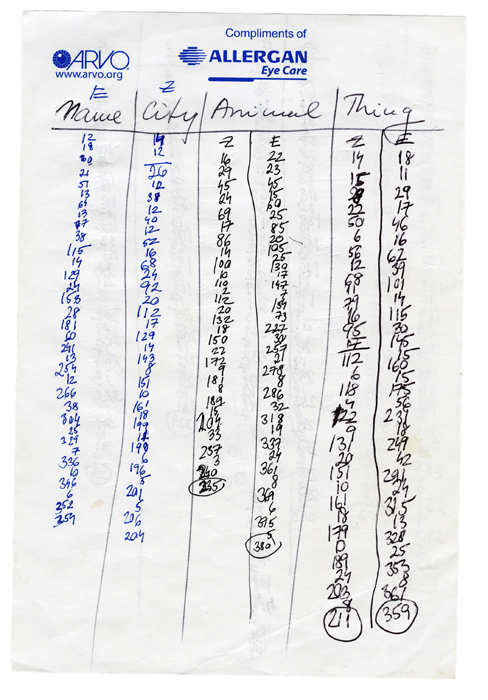 Compliments of
ARVO
www.arvo.org
ALLERGAN
Eye Care
E
Z
Name City Animal Thing
12
18
30
21
51
13
64
13
77
38
115
14
129
24
153
28
181
60
241
13
254
12
266
38
304
25
329
7
336
10
346
6
352
359
14
12
26
12
38
12
40
12
52
16
68
24
92
20
112
17
129
14
143
8
151
10
161
18
199
11
190
6
196
5
201
5
206
204
Z
16
29
45
24
69
17
86
14
100
10
110
2
112
20
132
18
150
22
172
9
181
8
189
15
204
33
237
3
240
235
E
22
23
45
15
60
25
85
20
105
25
130
17
147
7
154
73
227
30
257
21
278
8
286
32
318
19
339
24
361
8
369
6
375
5
380
Z
14
15
22
50
6
56
12
68
11
79
16
95
17
112
6
118
4
122
9
131
20
151
10
161
18
179
0
189
24
203
8
211
E
18
11
29
17
46
16
62
39
101
14
115
30
145
15
160
15
175
56
231
18
249
42
291
24
315
13
328
25
353
8
361
359